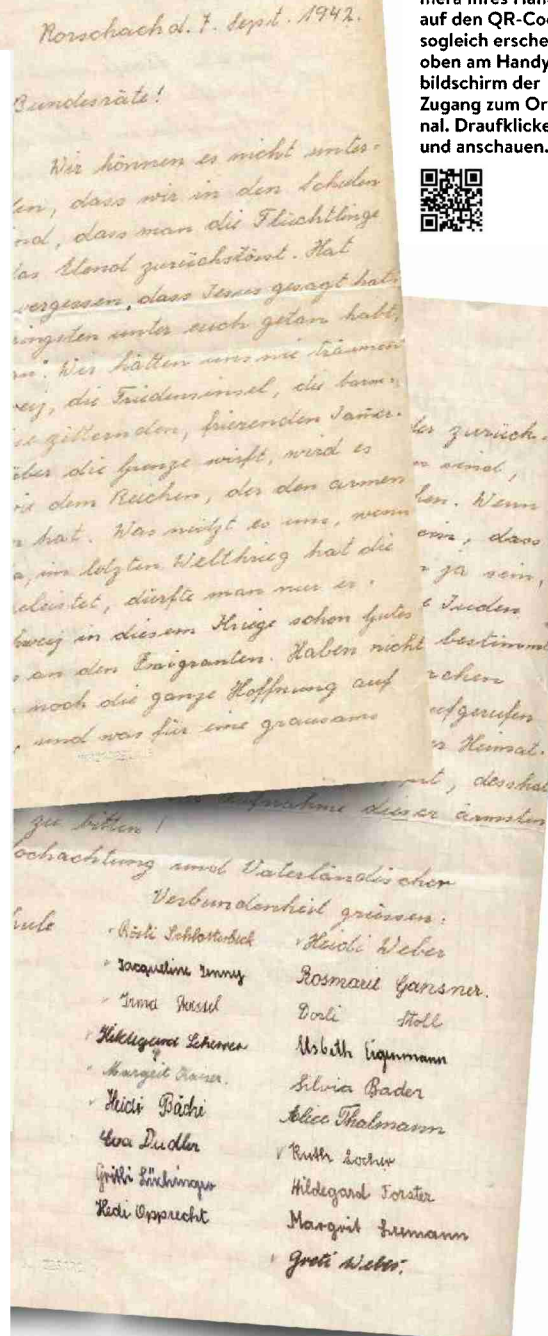 mera Ihres Han
auf den QR-Cod
sogleich ersche
oben am Handy
bildschirm der
Zugang zum Or
nal. Draufklicke
und anschauen.
Rorschach d. 7. Sept. 1942.
Bundesräte!
Wir können es nicht unter-
len, dass wir in den Schulen
ind, dass man die Flüchtlinge
das Elend zurückstösst. Hat
vergessen, dass Jesus gesagt hat:
ringsten unter euch getan habt,
an". Wir hätten uns nie träumen
weiz, die Friedensinsel, die barm-
se zitternden, frierenden Jamer-
über die Grenze wirft, wird es
wie dem Reichen, der den armen
n hat. Was nützt es uns, wenn
a, im letzten Weltkrieg hat die
eleistet, dürfte man nur er-
hweiz in diesem Kriege schon Gutes
s an den Emigranten. Haben nicht
noch die ganze Hoffnung auf
, und was für eine grausame
der zurück-
n sind,
ben. Wenn
ein, dass
n ja sein,
Juden
bestimmt
rchen
ufgerufen
er Heimat.
rt, desshal
Aufnahme dieser ärmsten
zu bitten!
ochachtung und Vaterländischer
Verbundenheit grüssen:
hule
Rösli Schlotterbeck
Jacqueline Jenny
Irma
Hildegund Scherrer
Margrit Kaiser.
Heidi Bächi
Eva Dudler
Grithi Lüchinger
Hedi Opprecht
Heidi Weber
Rosmarie Gansner.
Dorli Stoll
Elsbeth Eigenmann
Silvia Bader
Alice Thalmann
Ruth Locher
Hildegard Forster
Margrit Lumann
Greti Weber.